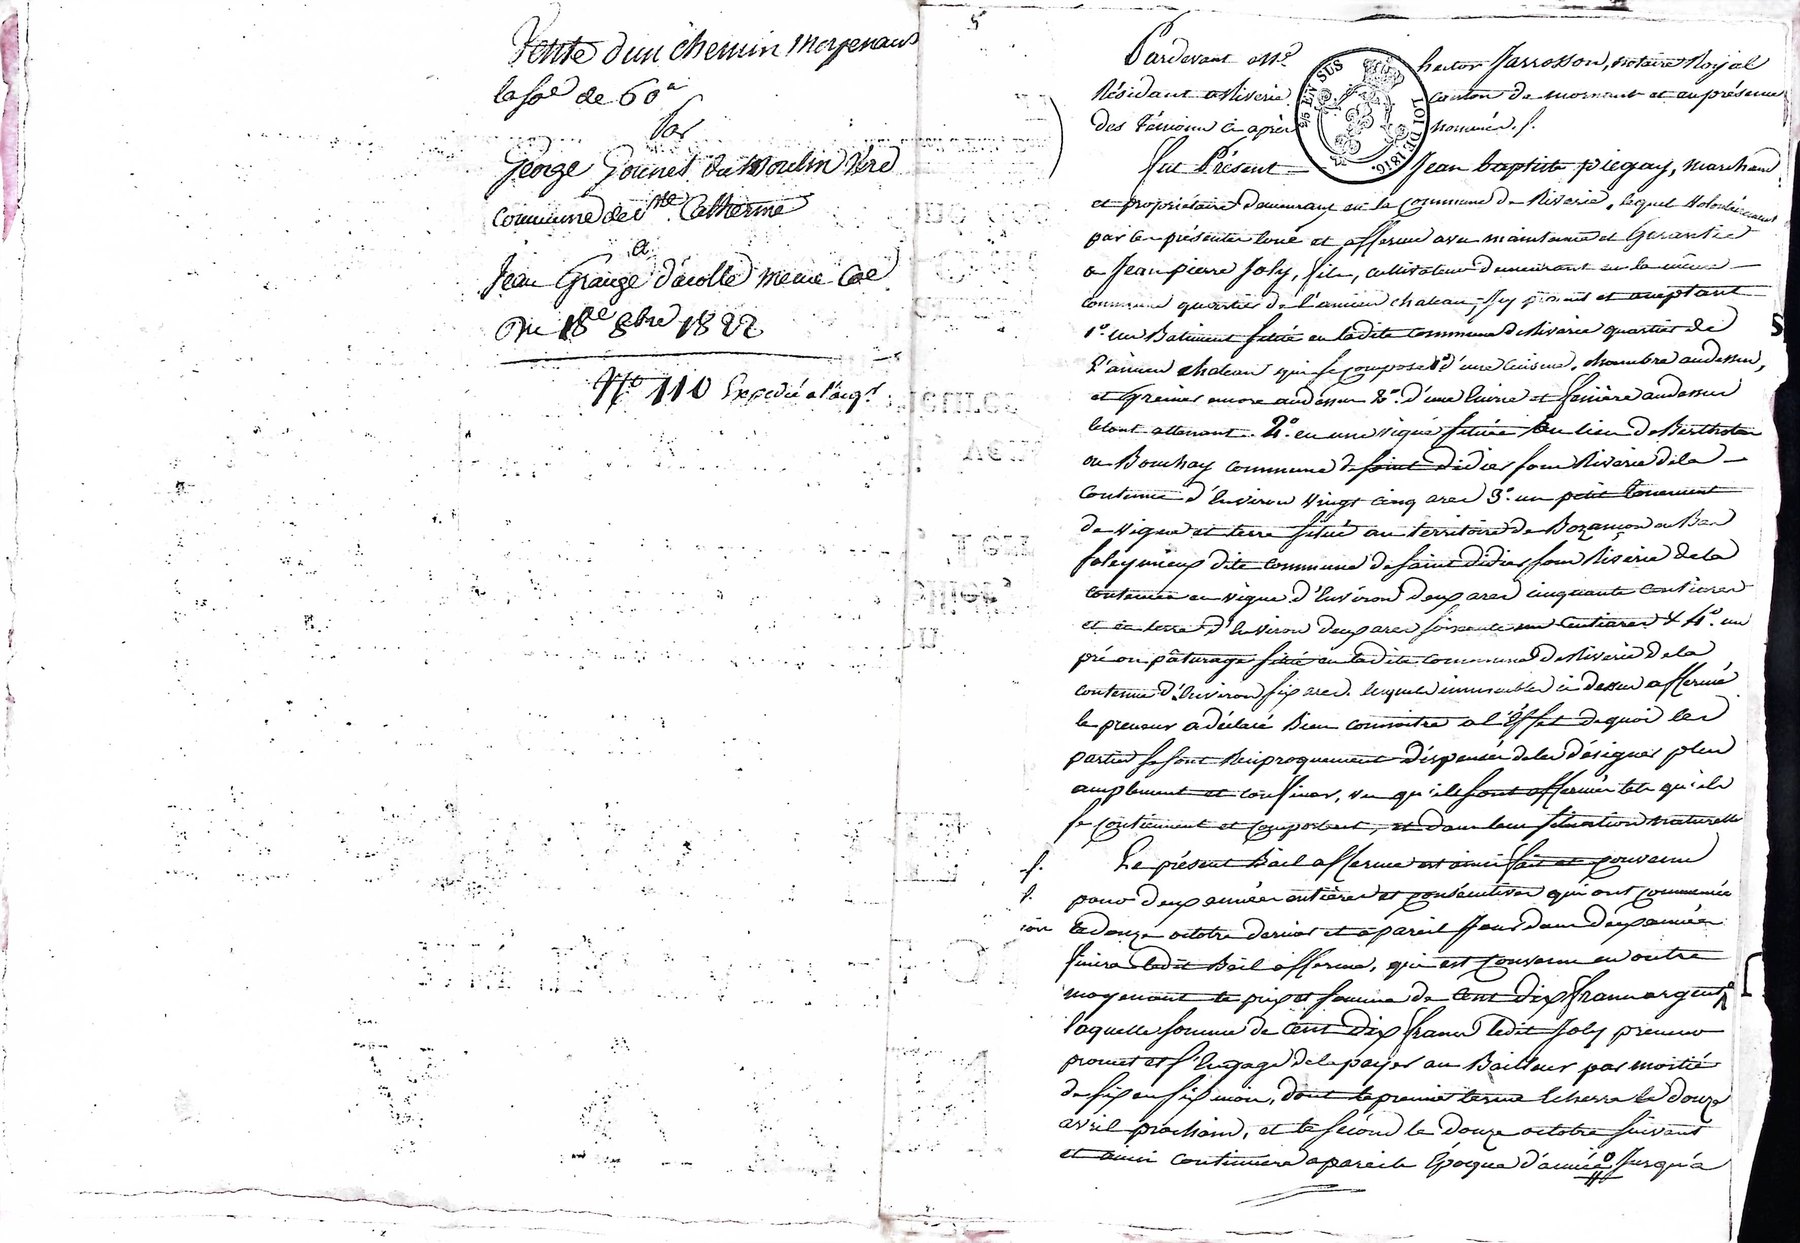 Vente d'un chemin moyenant
la soe de 60 ..
par
George Gounet du Moulin Véré
commune de Ste Catherine
a
Jean Grange d'acolle meme Coe
Du 18e 8bre 1822
No 110 Expédié a l'acqr
5
Pardevant Me hector Jarrosson, notaire Royal
Résidant a Riverie canton de mornant et en présence
des témoins ci après nommés.
25 EN SUS
LOI DE 1816.
fut Présent Jean baptiste piegay, marchand
et propriétaire demeurant en la commune de Riverie, lequel volontairement
par les présentes loue et afferme avec maintenue et Garantie
a Jean pierre Joly, fils, cultivateur demeurant en la même
commune quartier de l'ancien chateau, ici présent et acceptant
1o un Batiment situé en ladite commune de Riverie quartier de
l'ancien chateau qui se compose 1o d'une cuisine, chambre audessus,
et Grenier encore audessus 2o d'une Ecurie et fenière audessus
le tout attenant. 2o en une vigne située au lieu de Berthote
ou Bouchay commune de saint didier sous Riverie de la
contenue d'Environ vingt cinq ares 3o un petit tenement
de vigne et terre situé au territoire de Bozançon ou Bas
foleymieux dite commune de saint didier sous Riverie de la
contenue en vigne d'Environ deux ares cinquante centiares
et en terre d'Environ deux ares soixante centiares & 4o un
pré ou pâturage situé en ladite commune de Riverie de la
contenue d'Environ six ares. lesquels immeubles ci dessus affermé
le preneur a déclaré Bien connaitre a l'Effet de quoi les
parties se sont Réciproquement dispensés de les désigner plus
amplement et confiner, vu qu'ils sont affermés tels qu'ils
se contiennent et comportent, et dans leur situation naturelle
Le présent Bail a fferme est ainsi fait et convenu
pour deux années entières et consécutives qui ont commencé
le douze octobre dernier et a pareil Jour dans deux années
finira ledit Bail a fferme, qui est convenu en outre
moyenant le prix et somme de Cent Dix francs argent
laquelle somme de cent dix francs ledit Joly preneur
promet et s'Engage de la payer au Bailleur par moitié
de six en six mois, dont le premier terme Echerra le douze
avril prochain, et le sécond le douze octobre suivant
et ainsi continuera a pareille Epoque d'année Jusqu'a